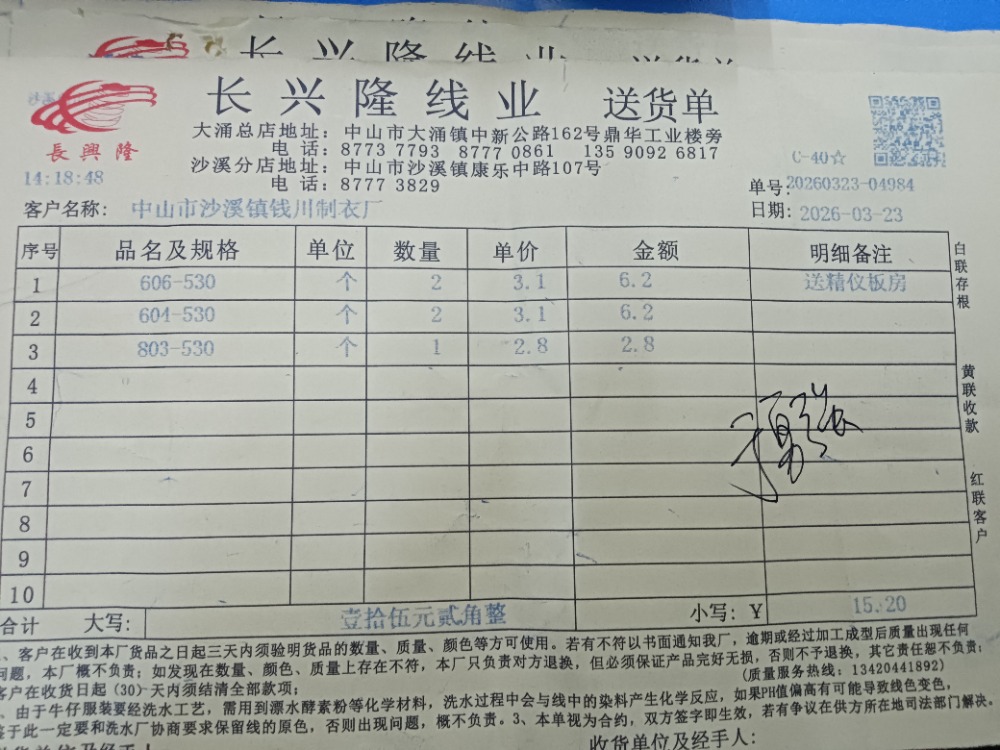 长兴隆线业 送货单
大涌总店地址：中山市大涌镇中新公路162号鼎华工业楼旁
电 话：8773 7793 8777 0861 135 9092 6817
沙溪分店地址：中山市沙溪镇康乐中路107号
电 话：8777 3829
長興隆
C-40☆
14:18:48
单号：20260323-04984
客户名称：中山市沙溪镇钱川制衣厂
日期：2026-03-23
序号 品名及规格 单位 数量 单价 金额 明细备注
1 606-530 个 2 3.1 6.2 送精仪板房
2 604-530 个 2 3.1 6.2
3 803-530 个 1 2.8 2.8
4
5
6
7
8
9
10
合计 大写：壹拾伍元贰角整 小写：¥ 15.20
白联存根
黄联收款
红联客户
、客户在收到本厂货品之日起三天内须验明货品的数量、质量、颜色等方可使用。若有不符以书面通知我厂，逾期或经过加工成型后质量出现任何
问题，本厂概不负责；如发现在数量、颜色、质量上存在不符，本厂只负责对方退换，但必须保证产品完好无损，否则不予退换，其它责任恕不负责；
(质量服务热线：13420441892)
客户在收货日起（30）天内须结清全部款项；
、由于牛仔服装要经洗水工艺，需用到漂水酵素粉等化学材料，洗水过程中会与线中的染料产生化学反应，如果PH值偏高有可能导致线色变色，
鉴于此一定要和洗水厂协商要求保留线的原色，否则出现问题，概不负责。3、本单视为合约，双方签字即生效，若有争议在供方所在地司法部门解决。
收货单位及经手人：